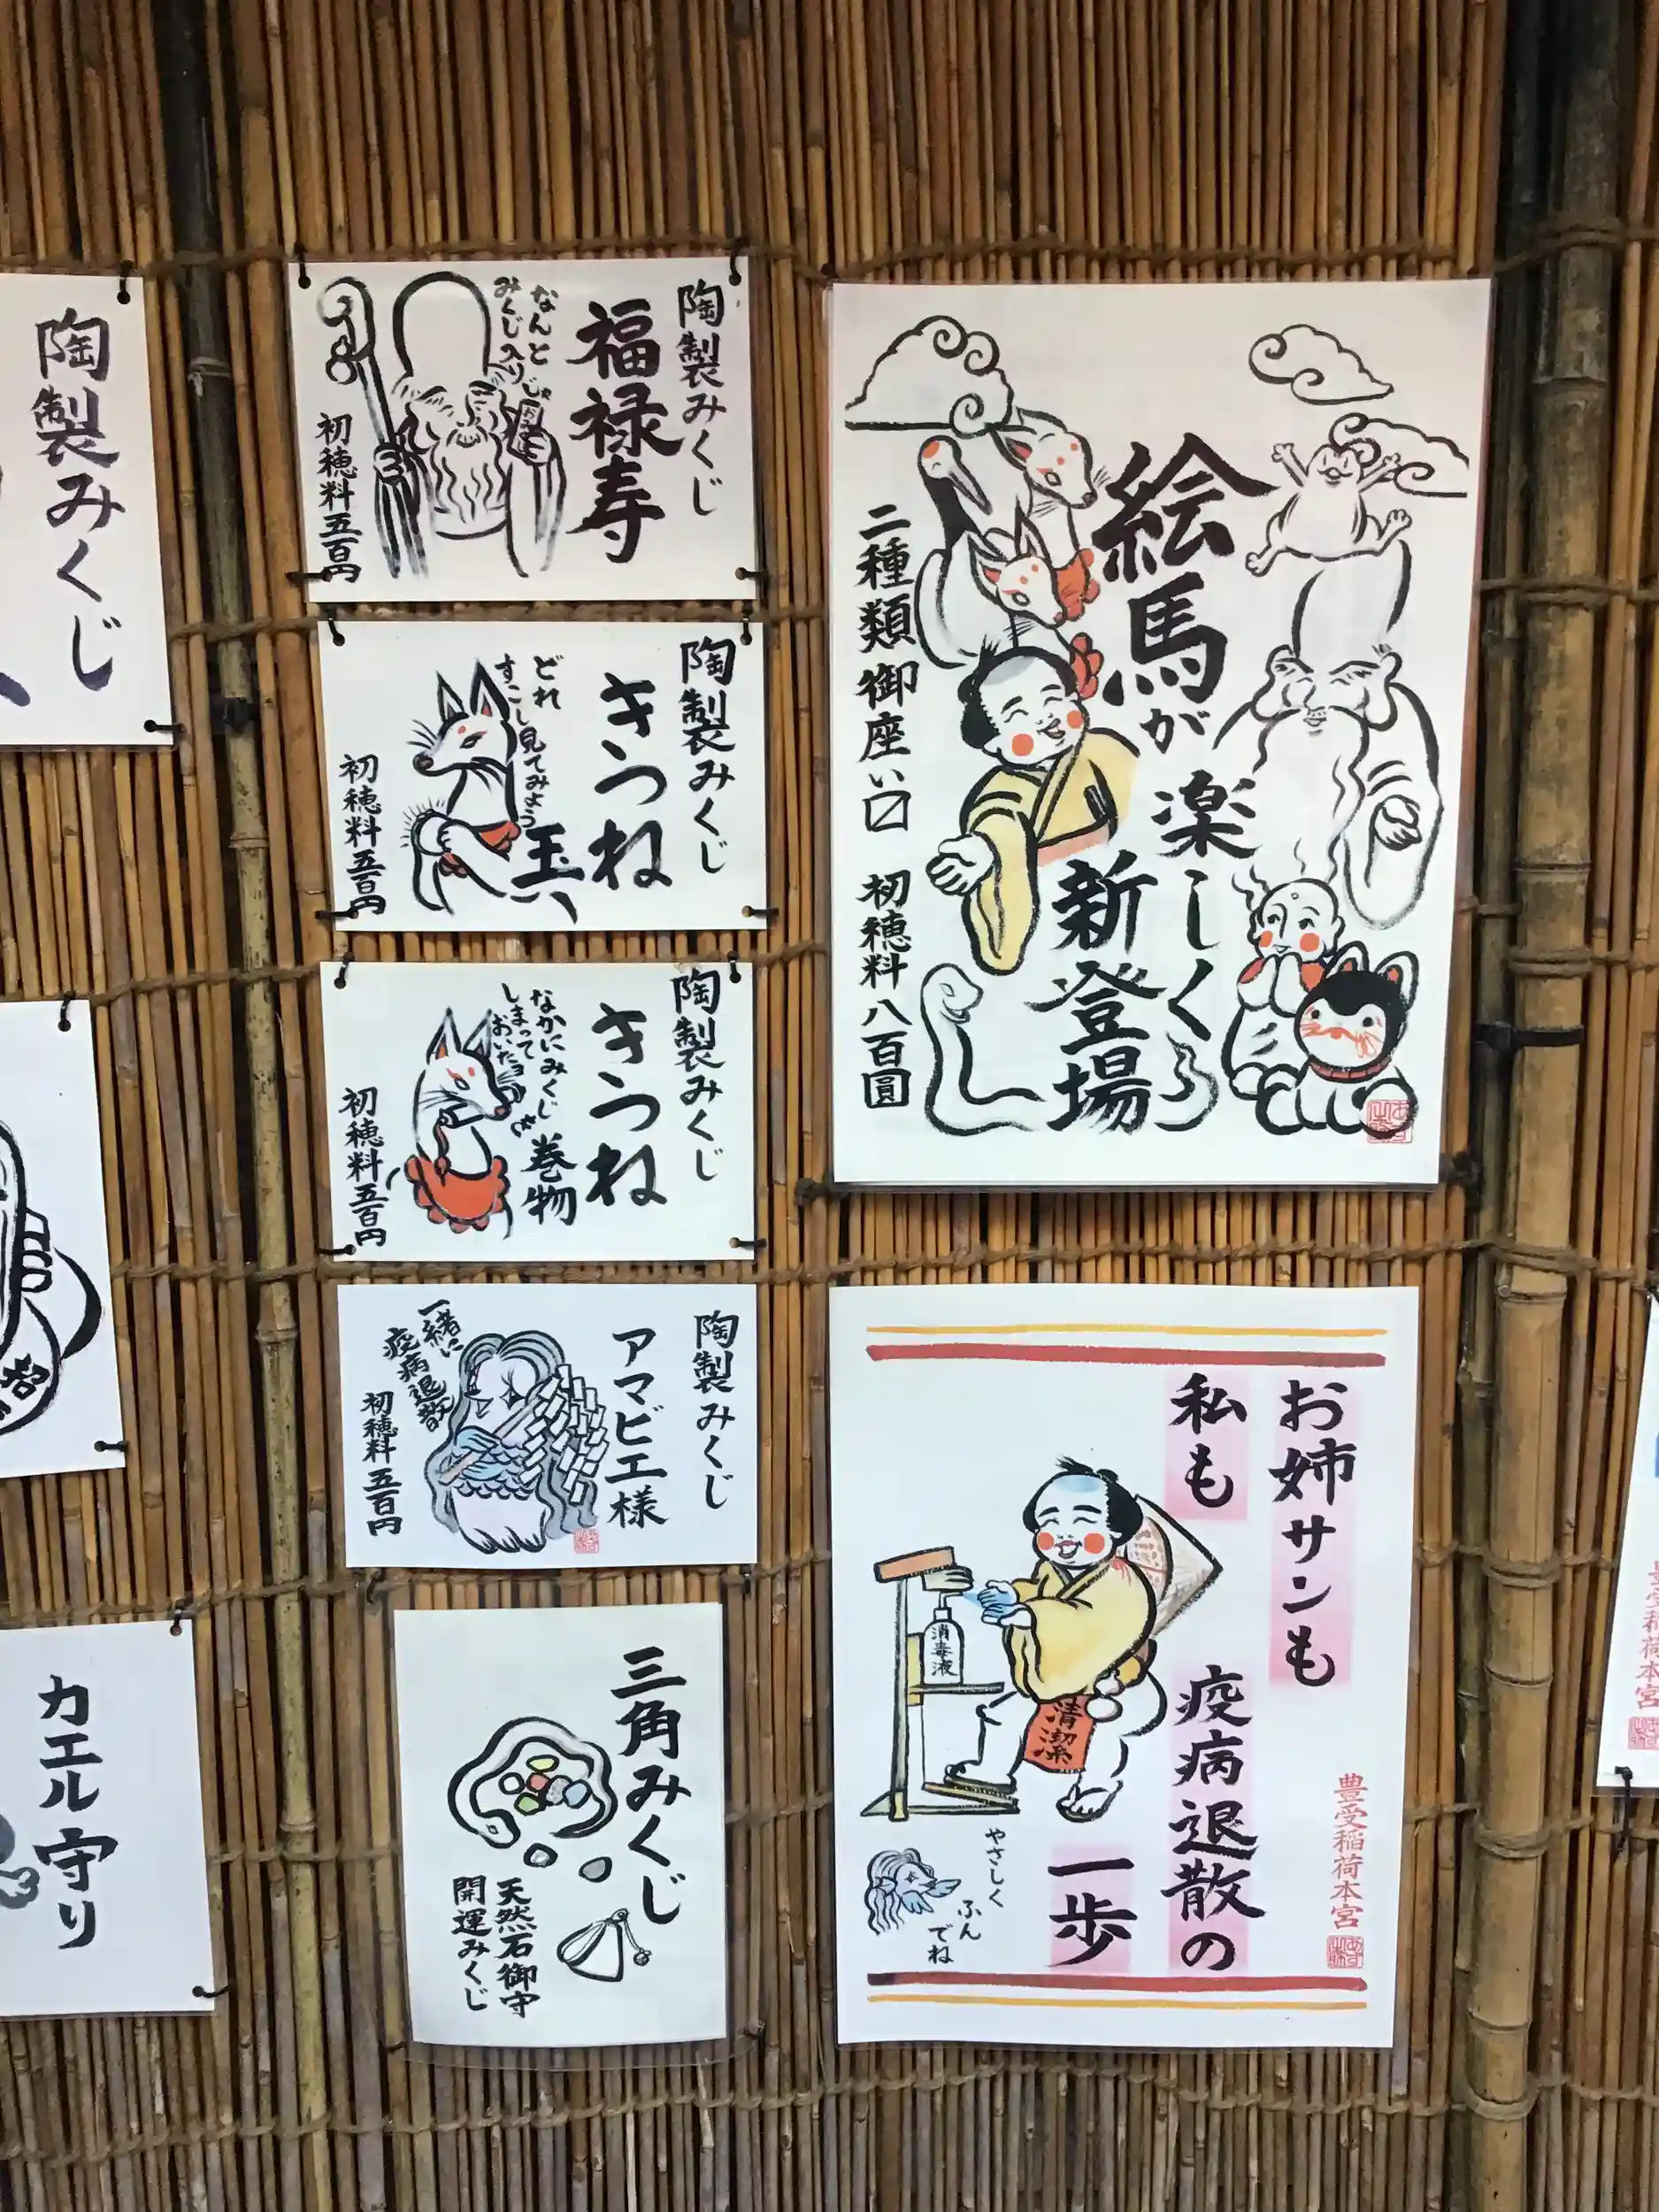 陶製みくじ
カエル守り
陶製みくじ
福禄寿
なんと
みくじ入りじゃ
初穂料五百円
陶製みくじ
きつね
玉
どれ
すこし見てみよう
初穂料五百円
陶製みくじ
きつね
巻物
なかにみくじ
しまって
おいたヨ
初穂料五百円
陶製みくじ
アマビエ様
一緒に
疫病退散
初穂料五百円
三角みくじ
天然石御守
開運みくじ
絵馬が
楽しく
新登場
二種類御座い〼
初穂料八百圓
お姉サンも
私も
疫病退散の
一歩
消毒液
清潔
やさしく
ふん
でね
豊受稲荷本宮
豊受稲荷本宮